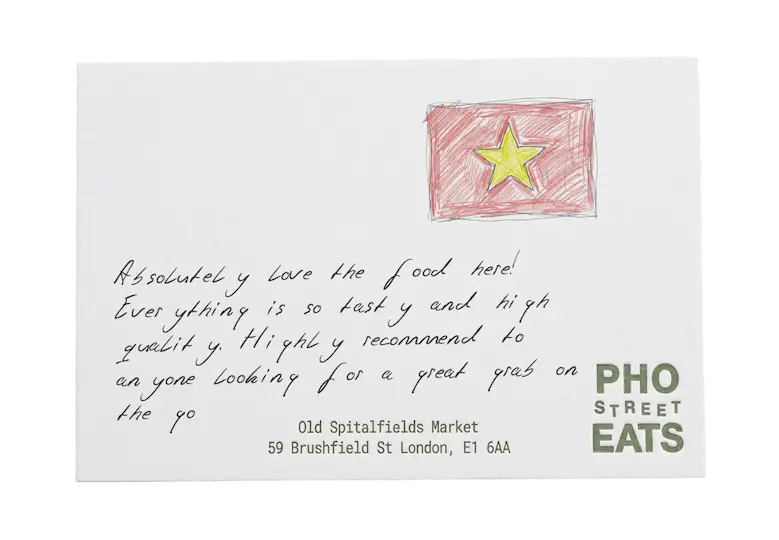 Absolutely love the food here!
Everything is so tasty and high
quality. Highly recommend to
anyone looking for a great grab on
the go
Old Spitalfields Market
59 Brushfield St London, E1 6AA
PHO
STREET
EATS